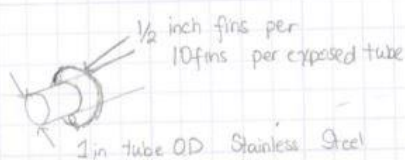 1/2 inch fins per
10 fins per exposed tube
1 in tube OD Stainless Steel